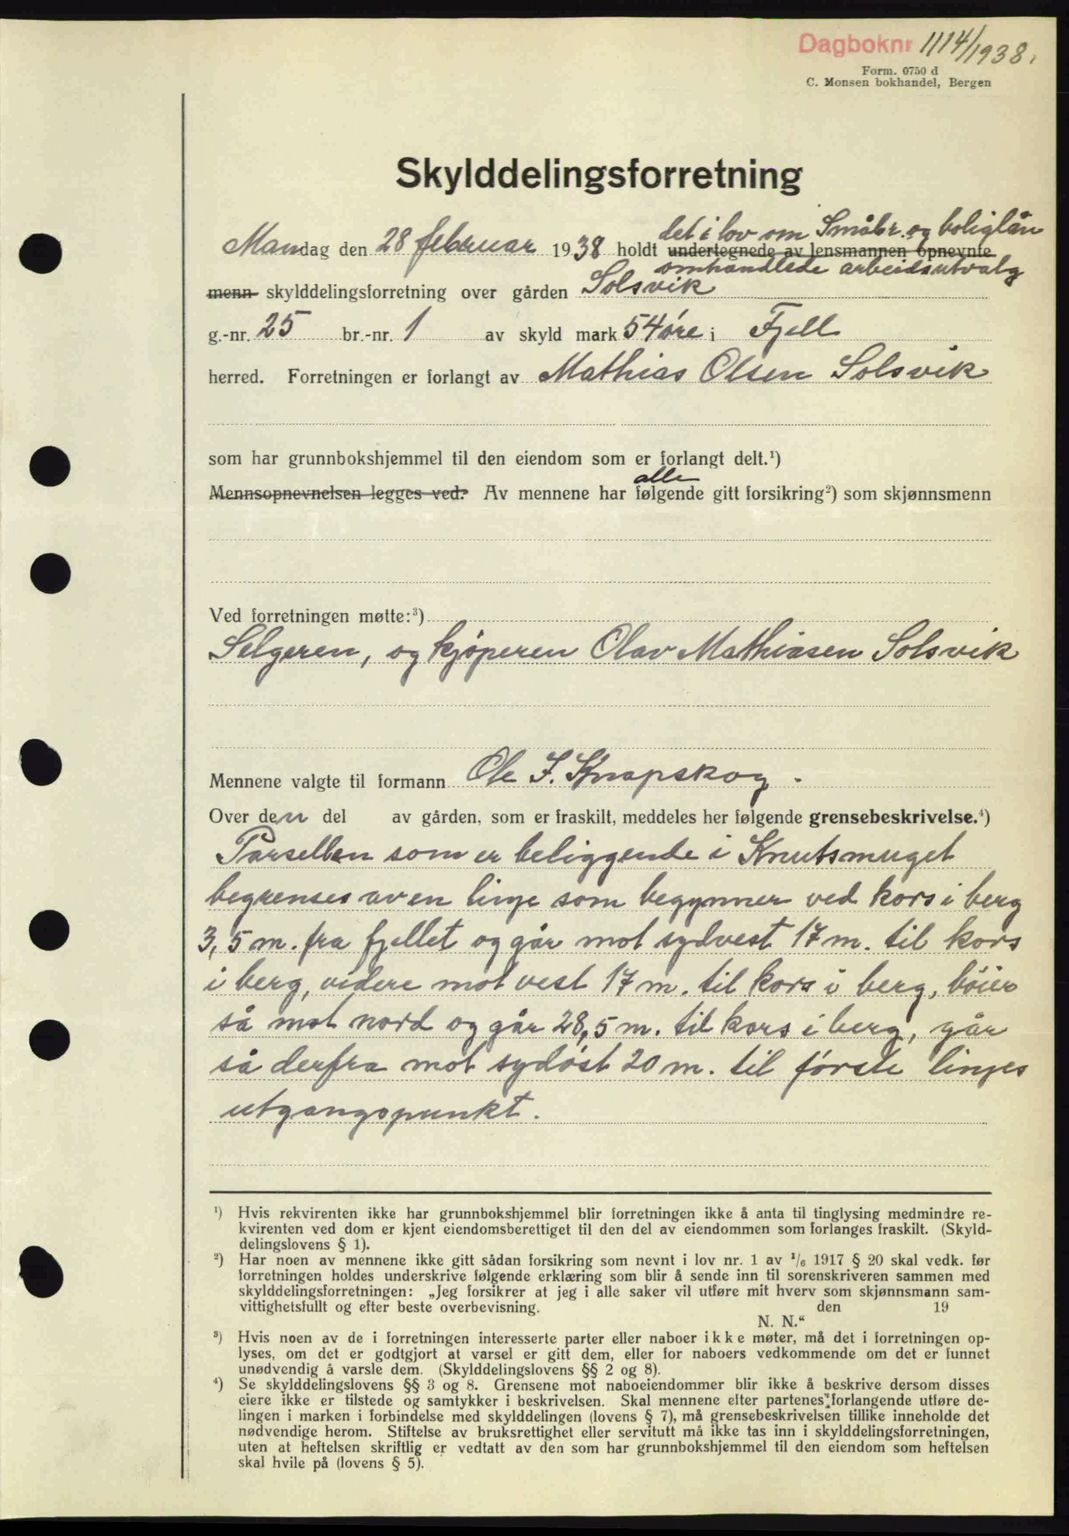 Dagboknr 1114/1938.
Form. 0750 d
C. Monsen bokhandel, Bergen
Skylddelingsforretning
det i lov om Småbr. og boliglån
Mandag den 28 februar 1938 holdt undertegnede av lensmannen opnevnte
omhandlede arbeidsutvalg
menn skylddelingsforretning over gården Solsvik
g.-nr. 25 br.-nr. 1 av skyld mark 54 øre i Fjell
herred. Forretningen er forlangt av Mathias Olsen Solsvik
som har grunnbokshjemmel til den eiendom som er forlangt delt.¹)
alle
Mennsopnevnelsen legges ved. Av mennene har følgende gitt forsikring²) som skjønnsmenn
Ved forretningen møtte:³)
Selgeren, og kjøperen Olav Mathiasen Solsvik
Mennene valgte til formann Ole J. Knapskog.
Over den del av gården, som er fraskilt, meddeles her følgende grensebeskrivelse.⁴)
Parsellen som er beliggende i Knutsmuget
begrenses av en linje som begynner ved kors i berg
3,5 m. fra fjellet og går mot sydvest 17 m. til kors
i berg, videre mot vest 17 m. til kors i berg, böier
så mot nord og går 28,5 m. til kors i berg, går
så derfra mot sydöst 20 m. til förste linjes
utgangspunkt.
¹) Hvis rekvirenten ikke har grunnbokshjemmel blir forretningen ikke å anta til tinglysing medmindre re-
kvirenten ved dom er kjent eiendomsberettiget til den del av eiendommen som forlanges fraskilt. (Skyld-
delingslovens § 1).
²) Har noen av mennene ikke gitt sådan forsikring som nevnt i lov nr. 1 av ¹/₆ 1917 § 20 skal vedk. før
forretningen holdes underskrive følgende erklæring som blir å sende inn til sorenskriveren sammen med
skylddelingsforretningen: „Jeg forsikrer at jeg i alle saker vil utføre mit hverv som skjønnsmann sam-
vittighetsfullt og efter beste overbevisning. den 19
N. N.“
³) Hvis noen av de i forretningen interesserte parter eller naboer ikke møter, må det i forretningen op-
lyses, om det er godtgjort at varsel er gitt dem, eller for naboers vedkommende om det er funnet
unødvendig å varsle dem. (Skylddelingslovens §§ 2 og 8).
⁴) Se skylddelingslovens §§ 3 og 8. Grensene mot naboeiendommer blir ikke å beskrive dersom disses
eiere ikke er tilstede og samtykker i beskrivelsen. Skal mennene efter partenes forlangende utføre de-
lingen i marken i forbindelse med skylddelingen (lovens § 7), må grensebeskrivelsen tillike inneholde det
nødvendige herom. Stiftelse av bruksrettighet eller servitutt må ikke tas inn i skylddelingsforretningen,
uten at heftelsen skriftlig er vedtatt av den som har grunnbokshjemmel til den eiendom som heftelsen
skal hvile på (lovens § 5).